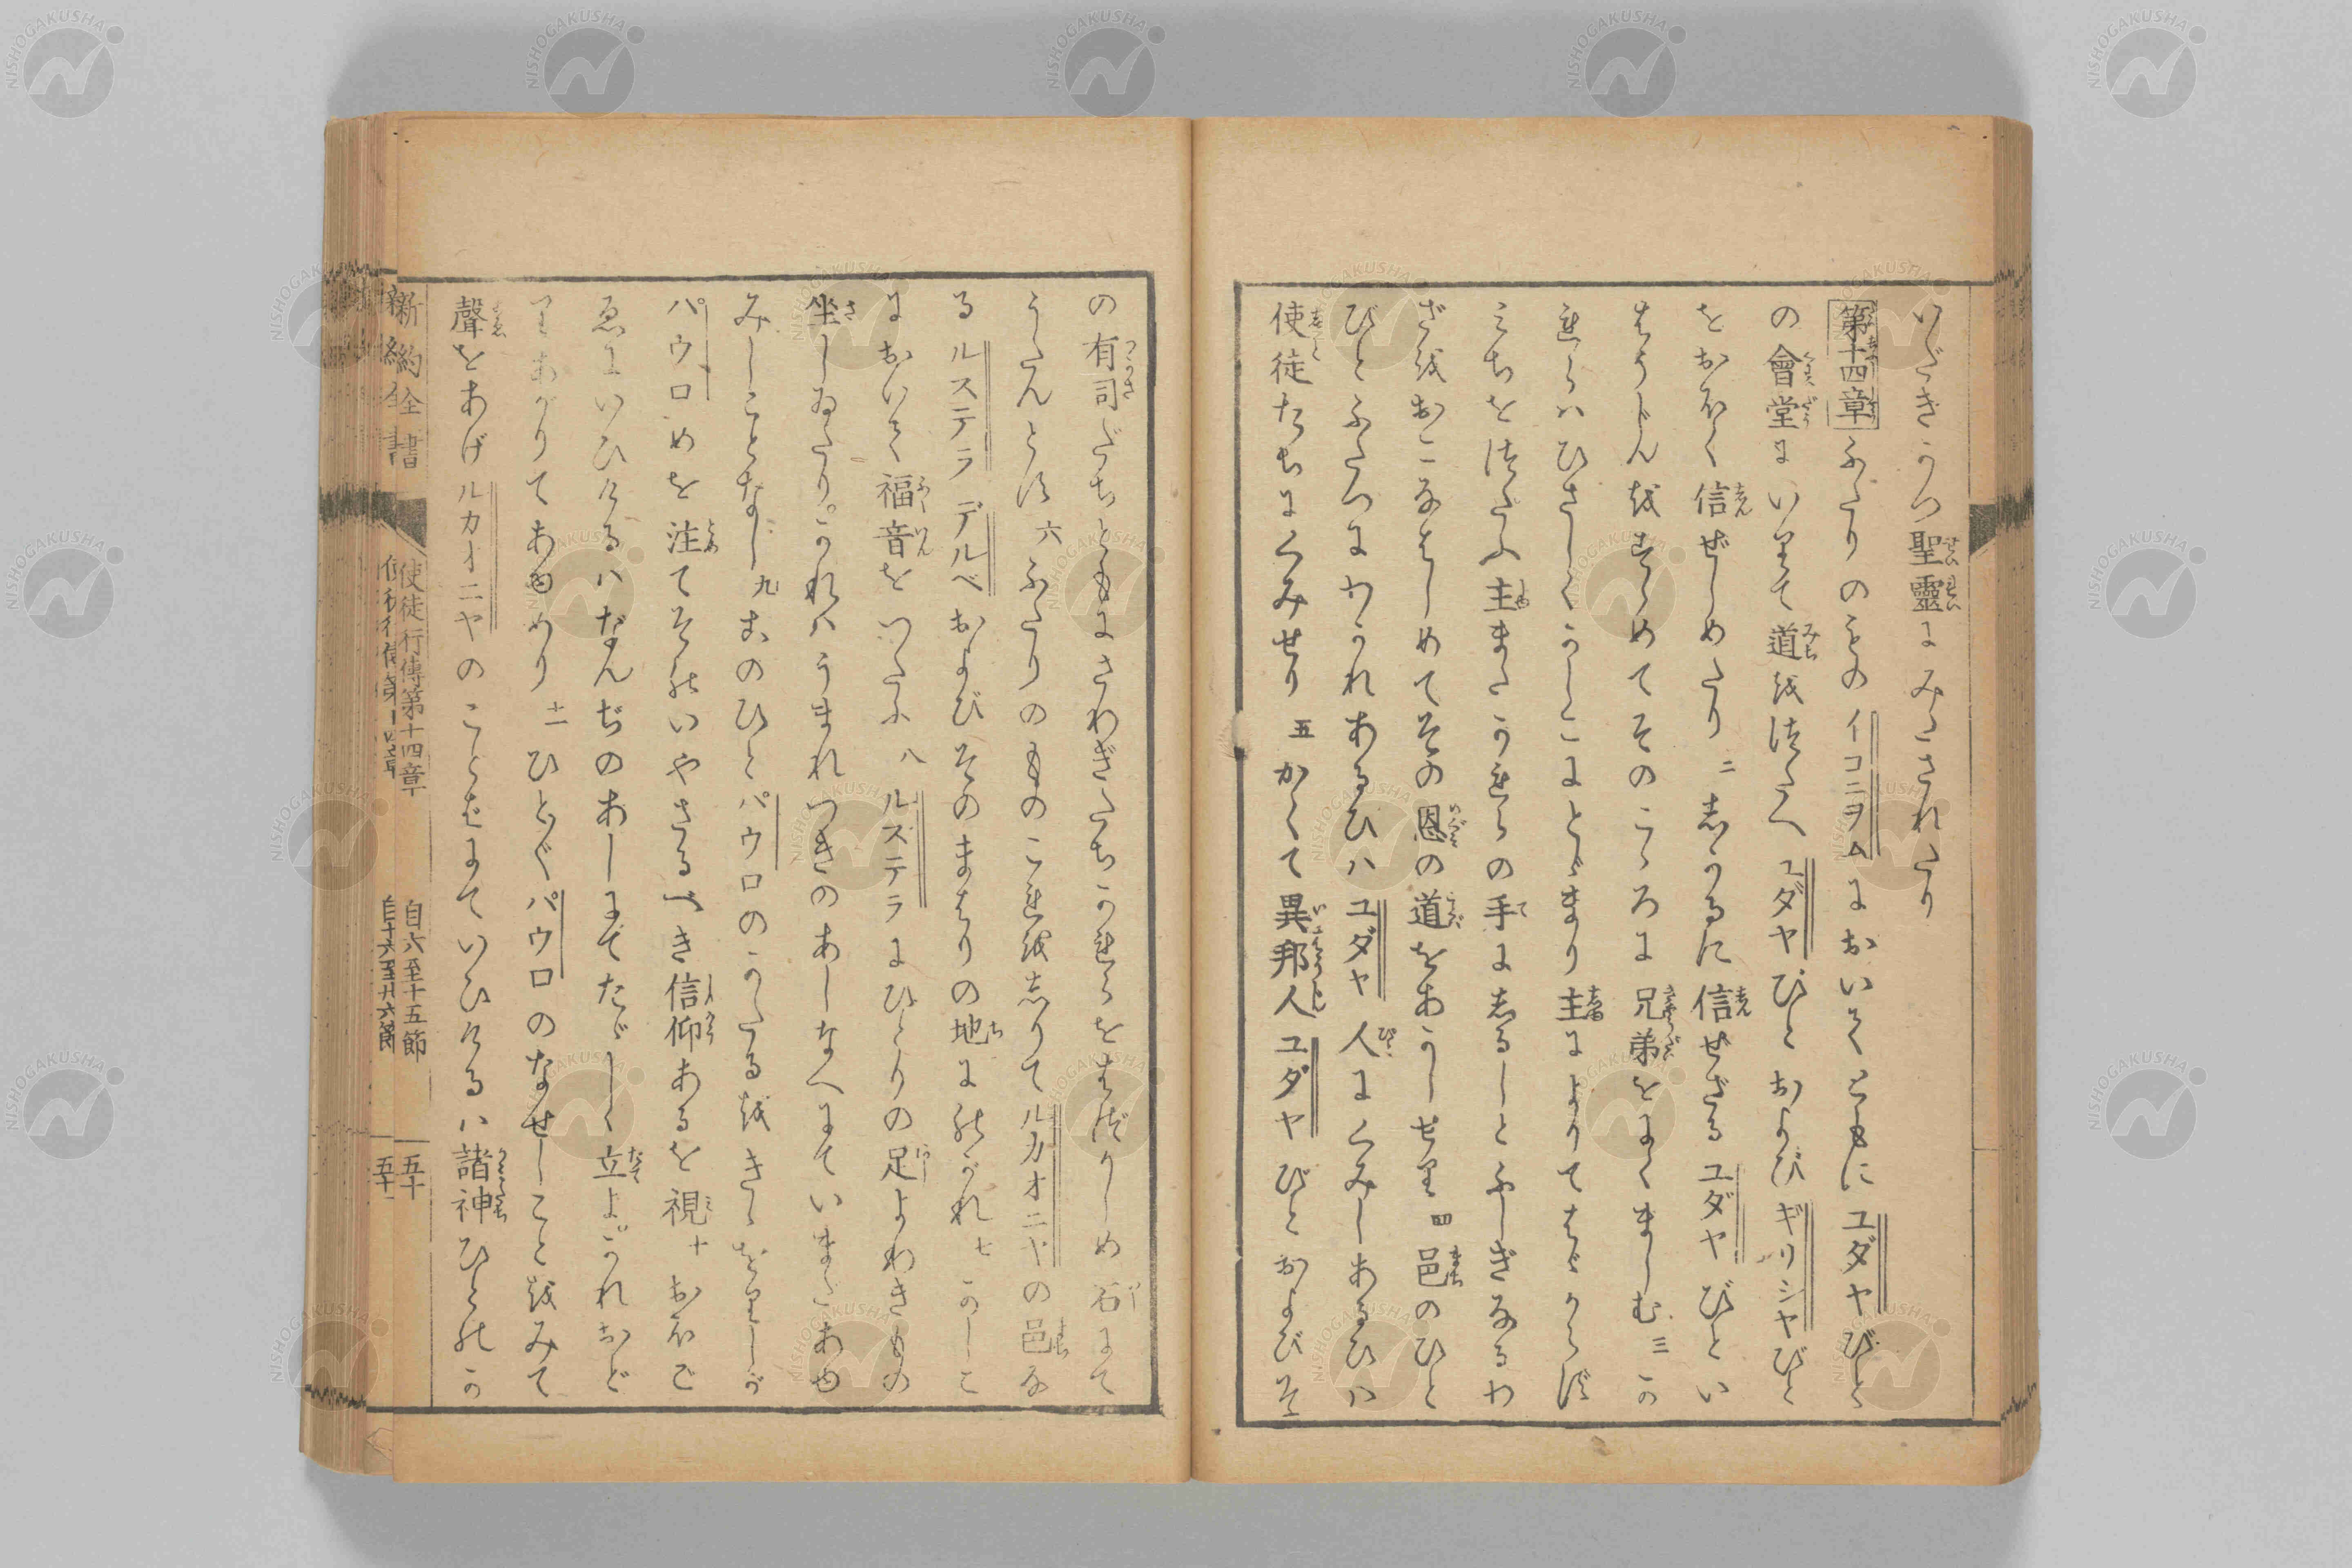 いだきかつ聖靈にみたされたり
第十四章ふたりのものイコニヲムにおいてともにユダヤびと
の會堂にいりて道をつたへユダヤびとおよびギリシヤびと
をおほく信ぜしめたり二しかるに信ぜざるユダヤびとい
はうじんをすゝめてそのこゝろに兄弟をにくましむ三か
れらハひさしくかしこにとゞまり主によりてはゞからず
みちをつたふ主またかれらの手にしるしとふしぎなるわ
ざをおこなはしめてその恩の道をあかしせり四邑のひと
びとふたつにわかれあるひハユダヤ人にくみしあるひハ
使徒たちにくみせり五かくて異邦人ユダヤびとおよびそ
の有司だちともにさわぎたちかれらをはづかしめ石にて
うたんとす六ふたりのものこれをしりてルカオニヤの邑な
るルステラデルベおよびそのまはりの地にのがれ七かしこ
において福音をつたふ八ルステラにひとりの足よわきもの
坐しゐたりかれハうまれつきのあしなへにていまだあゆ
みしことなし九このひとパウロのかたるをきゝをりしが
パウロめを注てそのいやさるべき信仰あるを視十おほご
ゑにいひけるハなんぢのあしにてたゞしく立よかれおど
りあがりてあゆめり十一ひとびとパウロのなせしことをみて
聲をあげルカオニヤのことばにていひけるハ諸神ひとのか
新約全書 使徒行傳第十四章 自六至十五節 五十